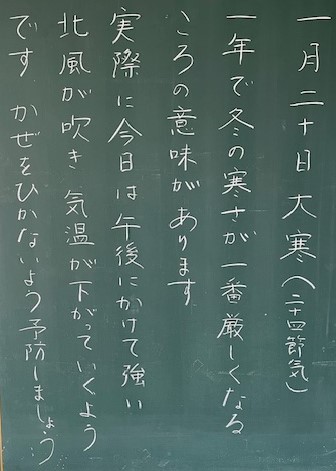 一月二十日 大寒（二十四節気）
一年で冬の寒さが一番厳しくなる
ころの意味があります
実際に今日は午後にかけて強い
北風が吹き 気温が下がっていくよう
です かぜをひかないよう予防しましょう